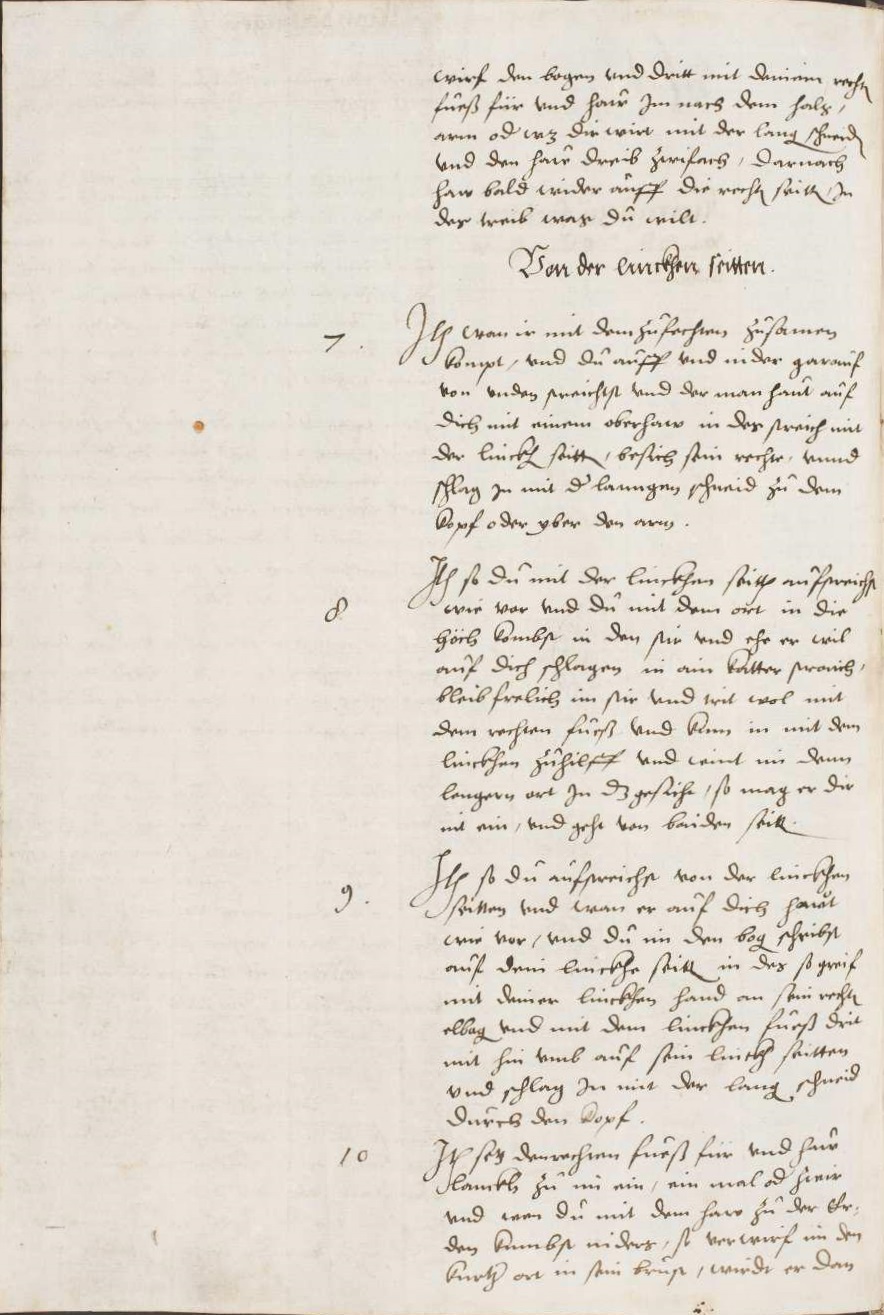 wirf den bogen vnd dritt mit deinem recht
fueß für vnd haw Im nach dem halß,
arm od wz dir wirt mit der lang schneid
vnd den haw dreib zwifach, darnach
haw bald wider auff die recht seitt, In
des treib was du wilt.
Von der linckhen seitten.
7. Itz wan ir mit dem zufechten zusamen
kompt, vnd du auff vnd nider garauf
von vnden streichst vnd der man haut auf
dich mit einem oberhaw in des streich mit
der linckh seitt, besich sein rechte, vnnd
schlag In mit d langen schneid zu dem
kopf oder yber den arm.
8 Itz so du mit der linckhen seitt aufstreichst
wie vor vnd du mit dem ort in die
höch kombst in den stir vnd ehe er wil
auf dich schlagen in ain katter straich,
bleib frelich im stir vnd trit wol mit
dem rechten fueß vnd kum in mit dem
linckhen zuhilff vnd wint im denn
lengern ort In dz gesicht, so mag er dir
nit ein, vnd geht von baiden seitt.
9. Itz so du aufstreichst von der linckhen
seitten vnd wan er auf dich hawt
wie vor, vnd du im den bog schribst
auf dein linckhe seitt in des so greif
mit deiner linckhen hand an sein recht
elbog vnd mit dem linckhen fueß drit
mit hin vmb auf sein linckh seitten
vnd schlag In mit der lang schneid
durch den kopf.
10 Itz setz den rechten fueß für vnd haw
lanckh zu im ein, ein mal od zwir
vnd wen du mit dem haw zu der Er-
den kumbst niders, so verwirf im den
kurtz ort in sein brust, wirdt er dan